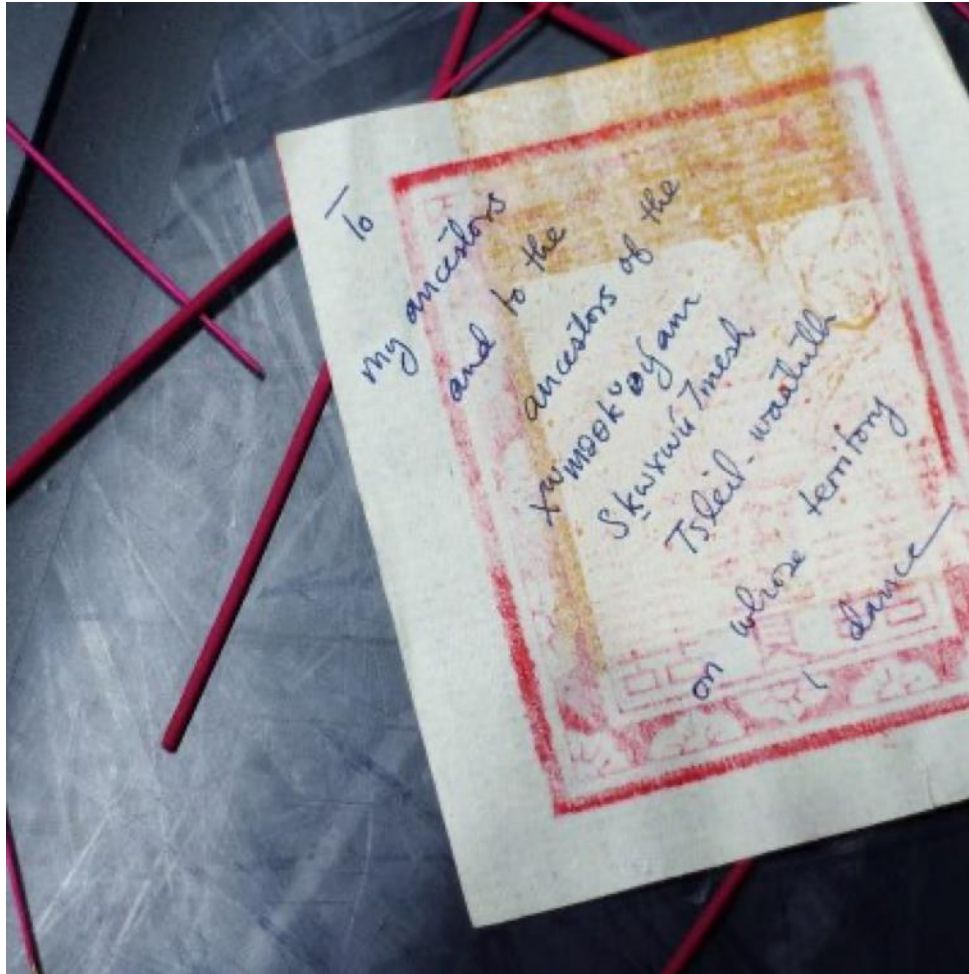 To
my ancestors
and to the
ancestors of the
xwməθkʷəy̓am
Skwxwú7mesh
Tsleil-waututh
on whose territory
I dance